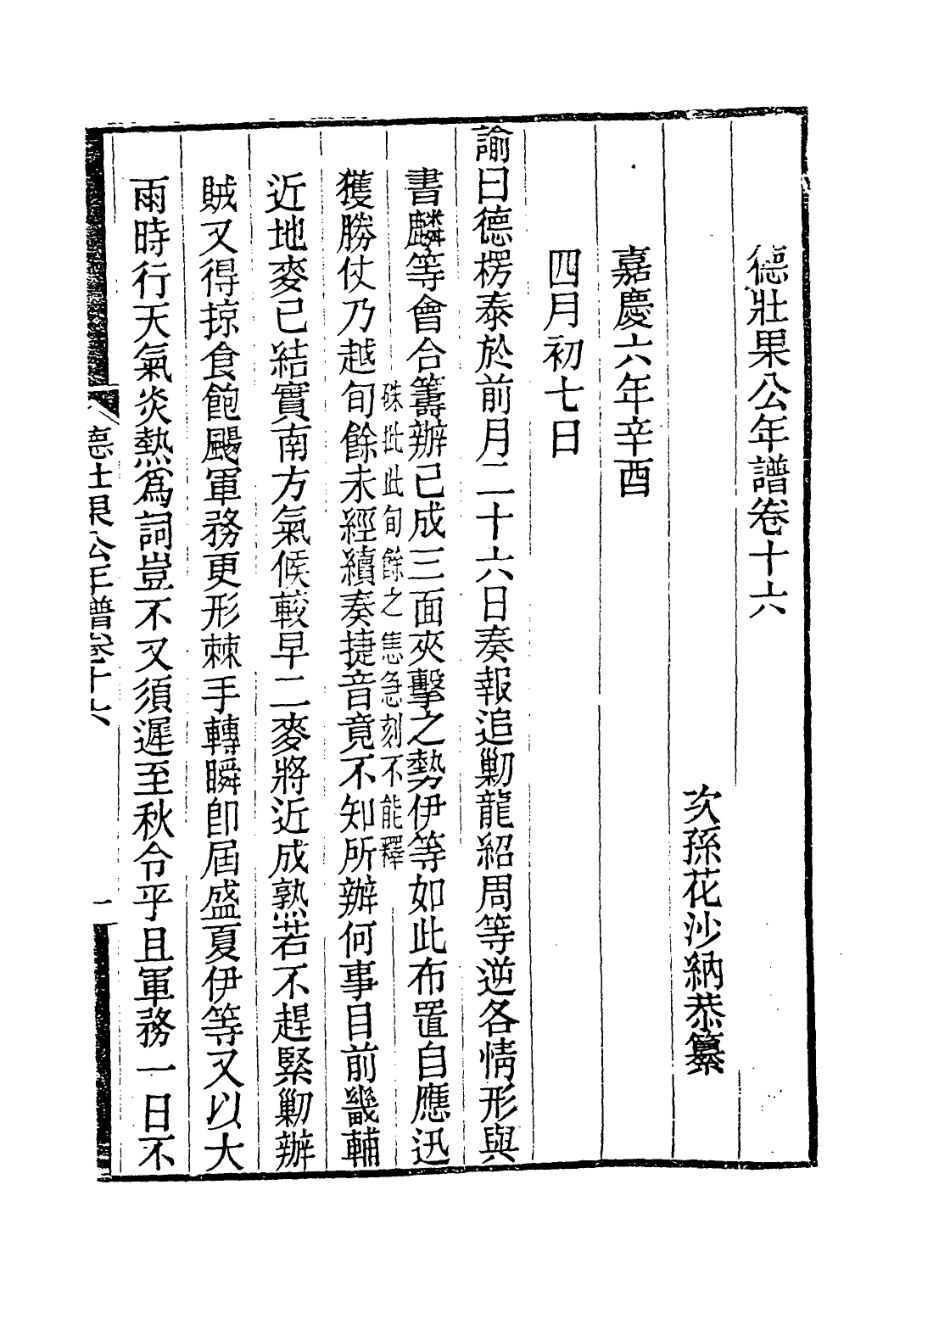 德壯果公年譜卷十六
次孫花沙納恭纂
嘉慶六年辛酉
四月初七日
諭曰德楞泰於前月二十六日奏報追勦龍紹周等逆各情形與
書麟等會合籌辦已成三面夾擊之勢伊等如此布置自應迅
硃批此旬餘之焦急刻不能釋
獲勝仗乃越旬餘未經續奏捷音竟不知所辦何事目前畿輔
近地麥已結實南方氣候較早二麥將近成熟若不趕緊勦辦
賊又得掠食飽颺軍務更形棘手轉瞬卽屆盛夏伊等又以大
雨時行天氣炎熱爲詞豈不又須遲至秋令乎且軍務一日不
德壯果公年譜卷十六
一